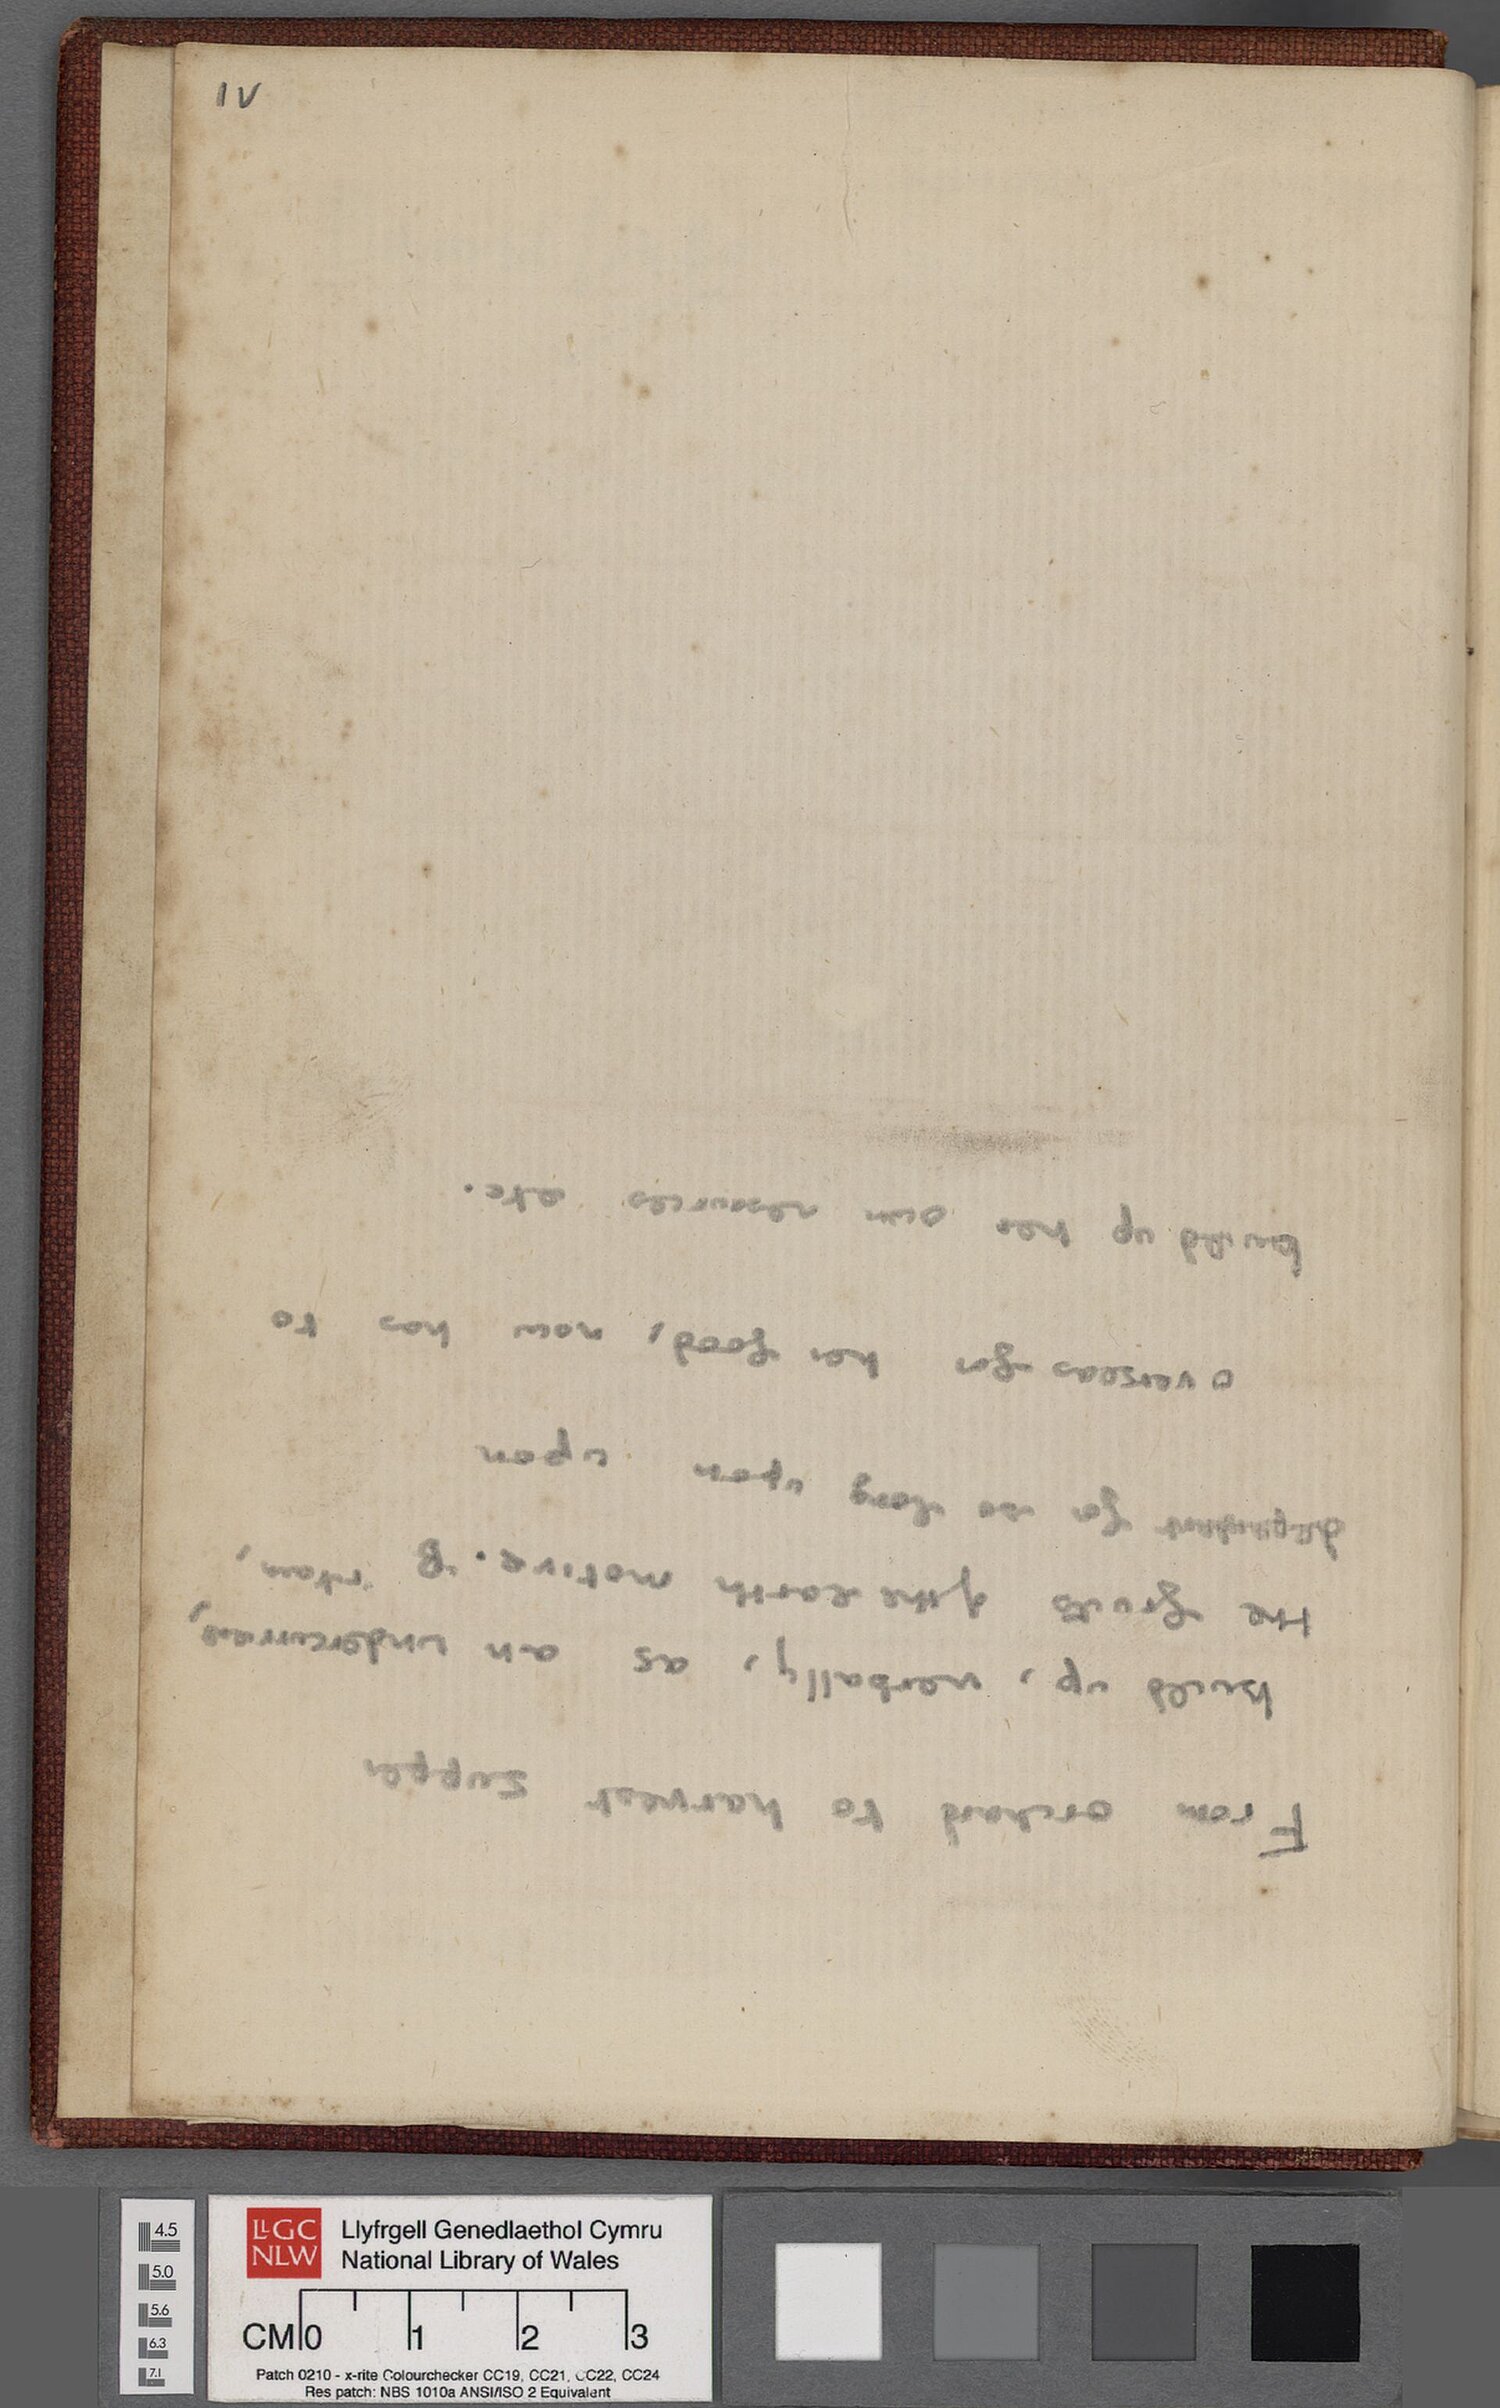 1v
From orchard to harvest supper
build up, verbally, as an undercurrent,
the fruits of the earth motive. Britain,
dependent for so long upon upon
overseas for her food, now has to
build up her own resources etc.
4.5
5.0
5.6
6.3
7.1
LLGC
NLW
Llyfrgell Genedlaethol Cymru
National Library of Wales
CM 0 1 2 3
Patch 0210 - x-rite Colourchecker CC19, CC21, CC22, CC24
Res patch: NBS 1010a ANSI/ISO 2 Equivalent